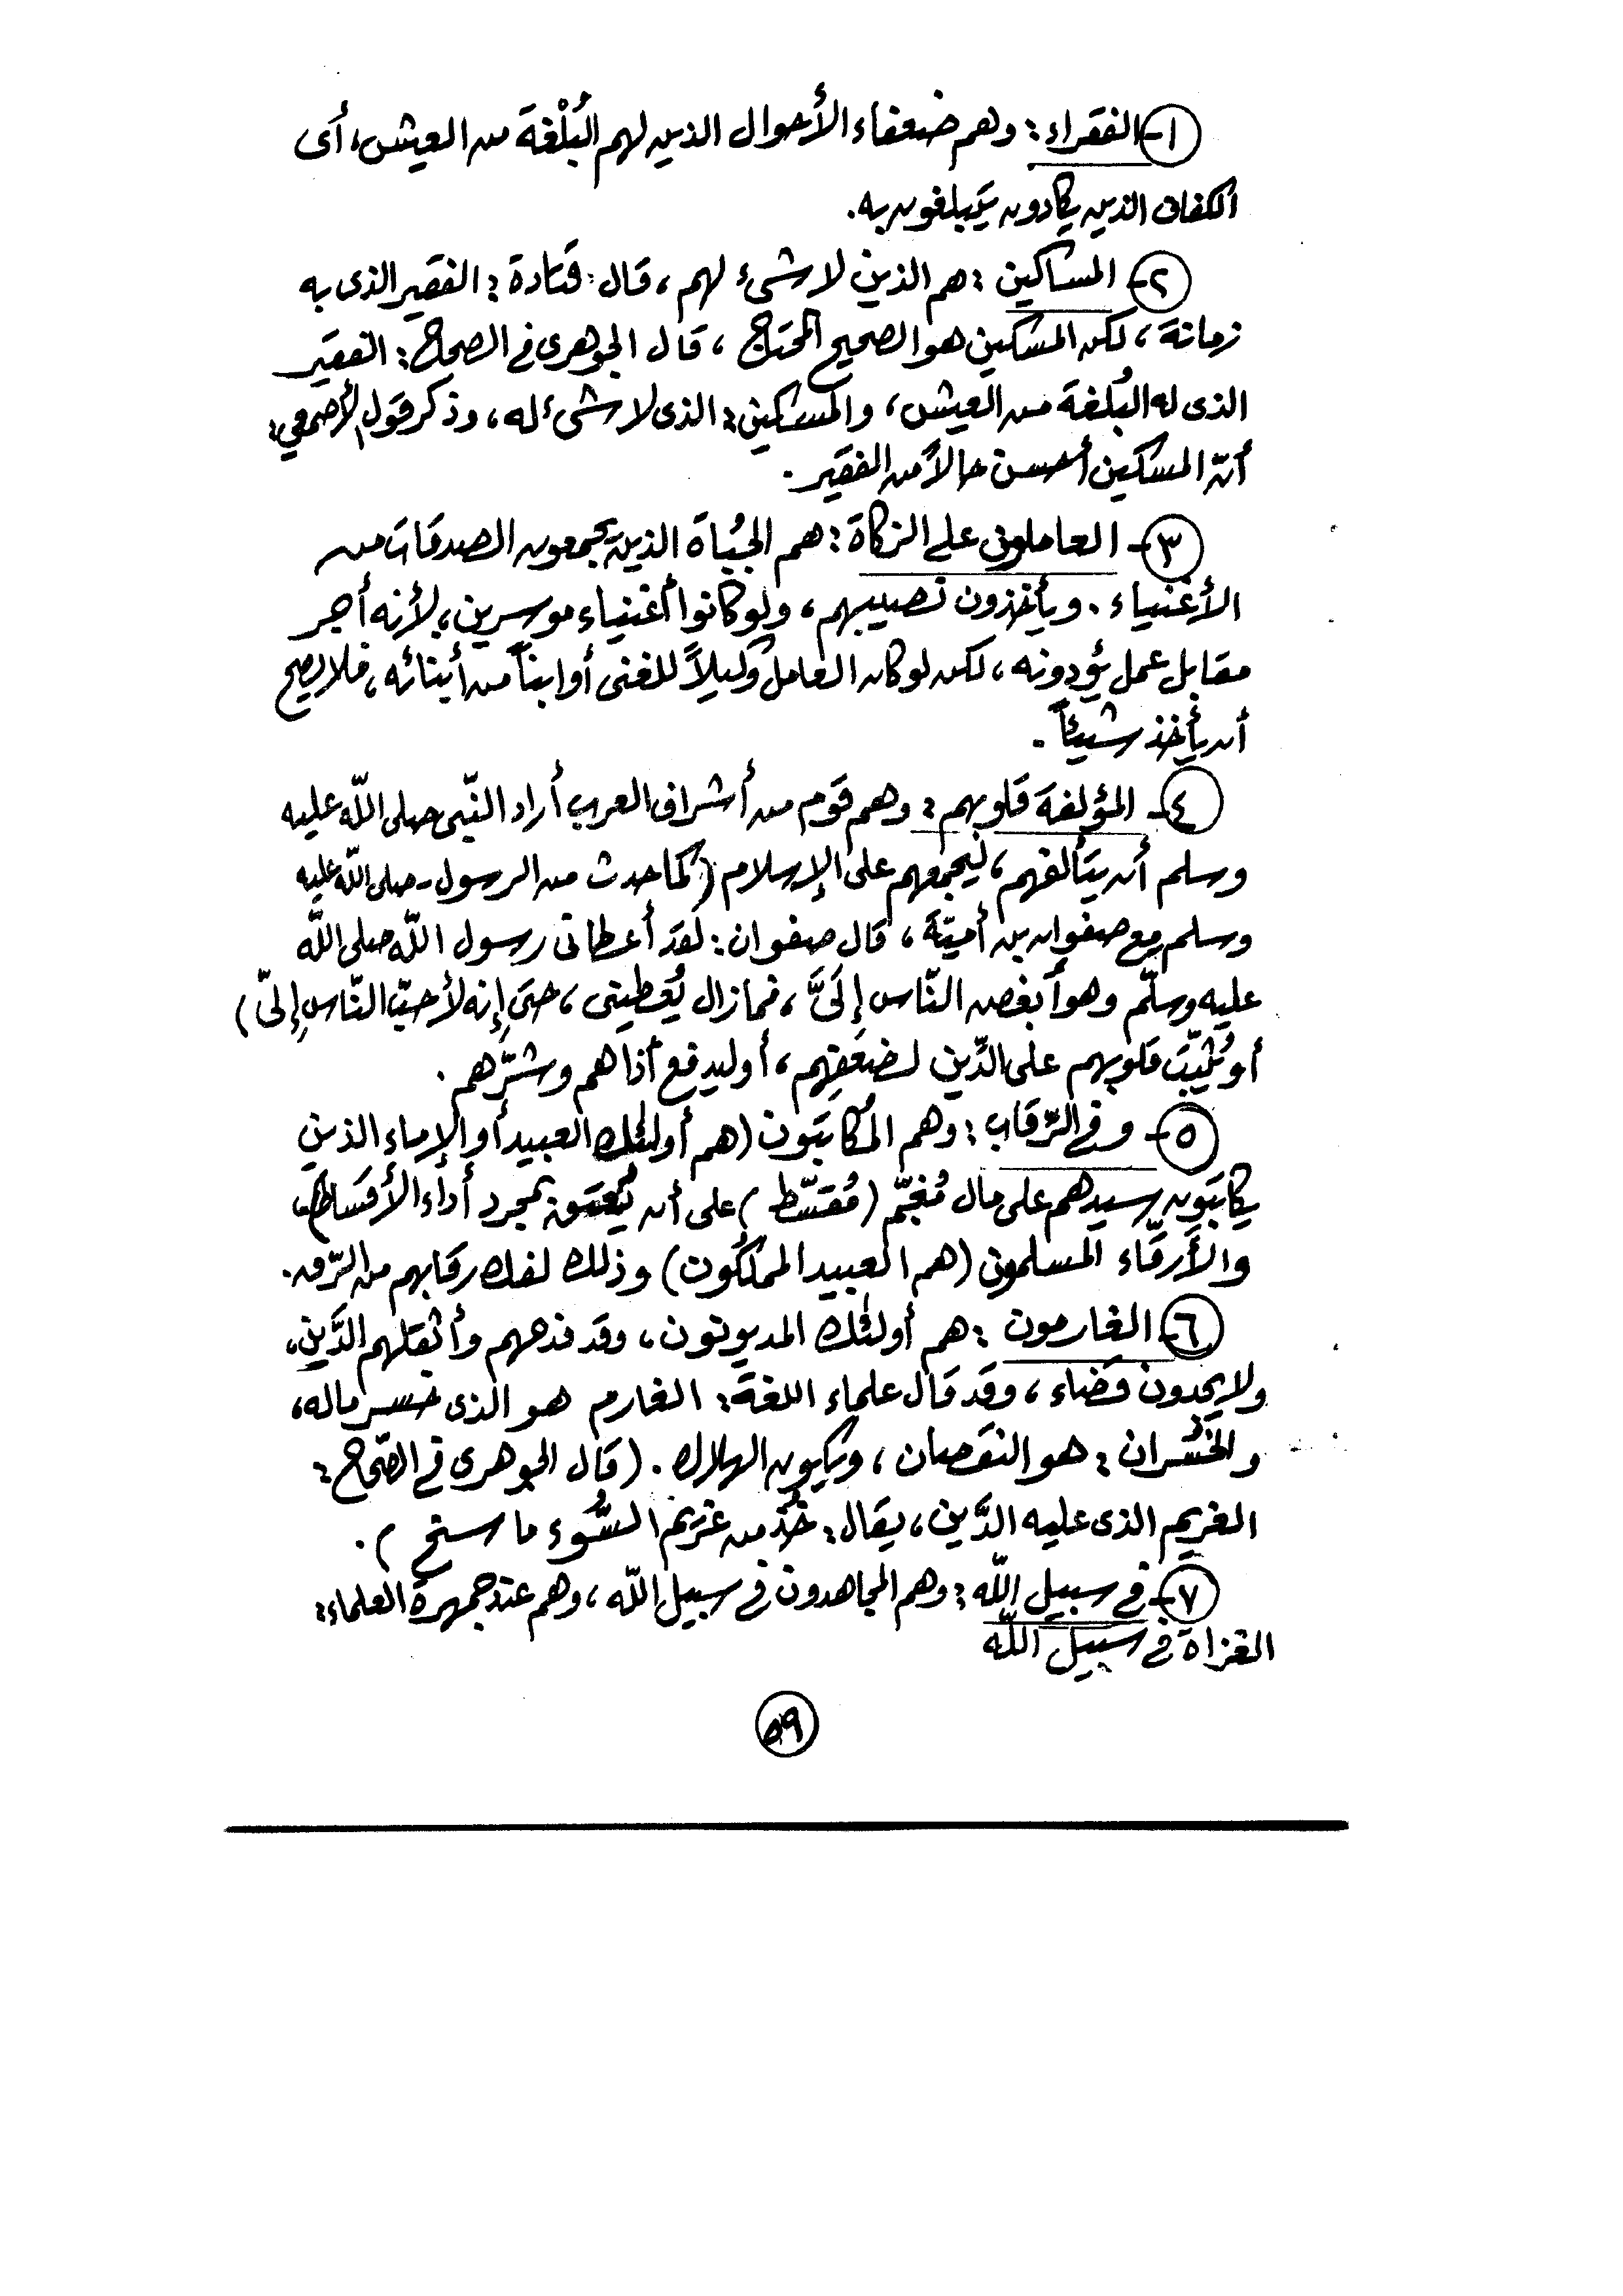 ١- الفقراء: وهم ضعفاء الأحوال الذين لهم البُلْغة من العيش، أى
الكفاف الذين يكادون يتبلغون به.
٢- المساكين: هم الذين لا شىء لهم، قال قتادة: الفقير الذى به
زمانة، لكن المسكين هو الصحيح المحتاج، قال الجوهرى فى الصحاح: الفقير
الذى له البُلغة من العيش، والمسكين: الذى لا شىء له، وذكر قول الأصمعي:
أنّ المسكين أحسن حالاً من الفقير.
٣- العاملون على الزكاة: هم الجُباة الذين يجمعون الصدقات من
الأغنياء. ويأخذون نصيبهم، ولو كانوا أغنياء موسرين، لأنه أجر
مقابل عمل يؤدونه، لكن لو كان العامل وكيلاً للغنى أو ابناً من أبنائه، فلا يصح
أن يأخذ شيئاً.
٤- المؤلفة قلوبهم: وهم قوم من أشراف العرب أراد النّبى صلى اللّه عليه
وسلم أن يتألفهم، ليجمعهم على الإسلام (كما حدث من الرسول - صلى اللّه عليه
وسلم مع صفوان بن أميّة، قال صفوان: لقد أعطانى رسول اللّه صلى اللّه
عليه وسلّم وهو أبغض النّاس إِلَىَّ، فما زال يُعطينى، حتى إنه لأحبّ النّاسِ إِلىّ)
أو يُثبِّت قلوبهم على الدِّين لضعفِهم، أو ليدفع أذاهم وشرّهم.
٥- وفى الرّقاب: وهم المُكاتبون (هم أولئك العبيد أو الإماء الذين
يكاتبون سيدهم على مال مُنجّم (مُقسّط) على أن يُعتقون بمجرد أداء الأقساط)،
والأرقّاء المسلمون (هم العبيد المملكُون) وذلك لفك رقابهم من الرّق.
٦- الغارمون: هم أولئك المديونون، وقد فدحهم وأثقلهم الدَّين،
ولا يجدون قضاء، وقد قال علماء اللغة: الغارم هو الذى خسر ماله،
والخُسْران: هو النقصان، ويكون الهلاك. (قال الجوهرى فى الصّحاح:
الغريم الذى عليه الدَّين، يقال: خُذْ من غريم السُّوء ما سنح).
٧- فى سبيل اللّه: وهم المجاهدون فى سبيل اللّه، وهم عند جمهرة العلماء:
الغزاة فى سبيل اللّه
٥٩